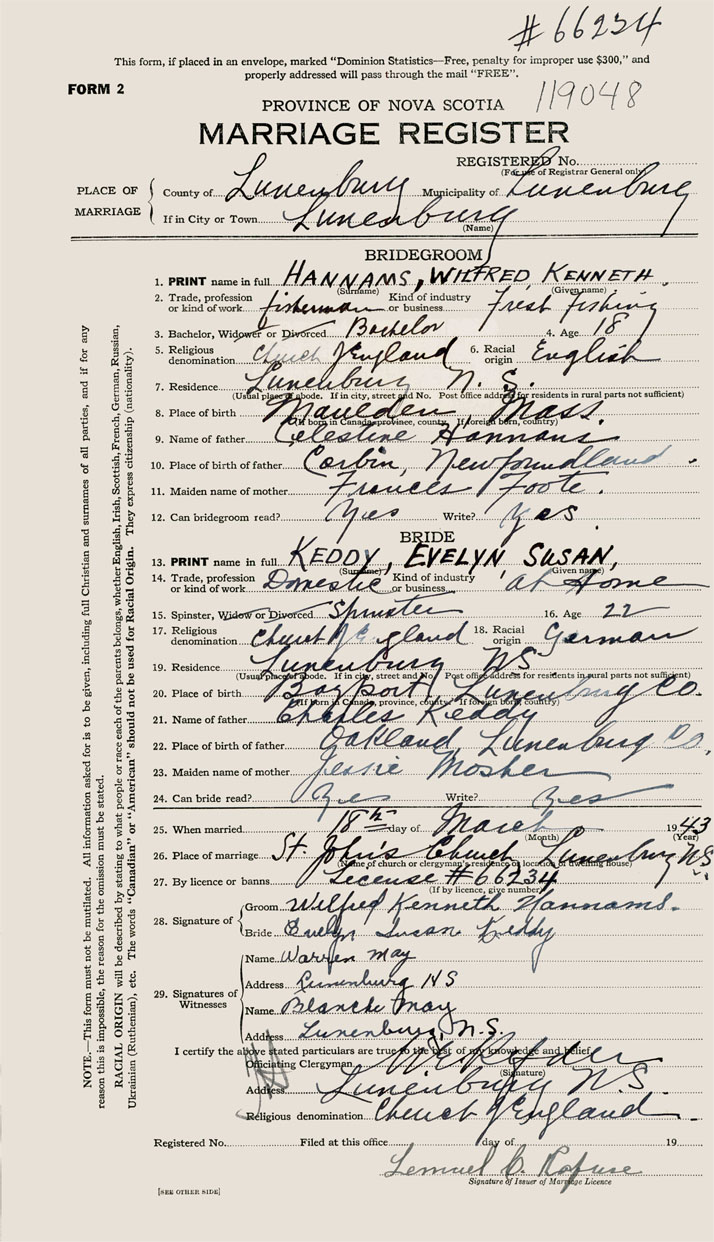 #66234
This form, if placed in an envelope, marked "Dominion Statistics—Free, penalty for improper use $300," and
properly addressed will pass through the mail "FREE".
FORM 2
119048
PROVINCE OF NOVA SCOTIA
MARRIAGE REGISTER
REGISTERED No.
(For use of Registrar General only)
PLACE OF MARRIAGE
County of Lunenburg Municipality of Lunenburg
If in City or Town Lunenburg
(Name)
BRIDEGROOM
1. PRINT name in full HANNAMS, WILFRED KENNETH
(Surname) (Given name)
2. Trade, profession or kind of work fisherman Kind of industry or business Fresh Fishing
3. Bachelor, Widower or Divorced Bachelor 4. Age 18
5. Religious denomination Church of England 6. Racial origin English
7. Residence Lunenburg N.S.
(Usual place of abode. If in city, street and No. Post office address for residents in rural parts not sufficient)
8. Place of birth Maulden, Mass.
(If born in Canada, province, county. If foreign born, country)
9. Name of father Celestine Hannams
10. Place of birth of father Corbin, Newfoundland.
11. Maiden name of mother Frances Foote.
12. Can bridegroom read? Yes Write? Yes
BRIDE
13. PRINT name in full KEDDY, EVELYN SUSAN,
(Surname) (Given name)
14. Trade, profession or kind of work Domestic Kind of industry or business at Home
15. Spinster, Widow or Divorced Spinster 16. Age 22
17. Religious denomination Church of England 18. Racial origin German
19. Residence Lunenburg NS
(Usual place of abode. If in city, street and No. Post office address for residents in rural parts not sufficient)
20. Place of birth Bayport, Lunenburg Co.
(If born in Canada, province, county. If foreign born, country)
21. Name of father Charles Keddy
22. Place of birth of father Oakland, Lunenburg Co,
23. Maiden name of mother Jessie Mosher
24. Can bride read? Yes Write? Yes
25. When married 18th day of March 1943
(Month) (Year)
26. Place of marriage St. John's Church Lunenburg NS
(Name of church or clergyman's residence or location of dwelling house)
27. By licence or banns License #66234
(If by licence, give number)
28. Signature of
Groom Wilfred Kenneth Hannams.
Bride Evelyn Susan Keddy
29. Signatures of Witnesses
Name Warren May
Address Lunenburg NS
Name Blanche May
Address Lunenburg, N.S.
I certify the above stated particulars are true to the best of my knowledge and belief.
Officiating Clergyman
(Signature)
Address Lunenburg N.S.
Religious denomination Church of England
Registered No. Filed at this office day of 19
Lemuel
Signature of Issuer of Marriage Licence
[SEE OTHER SIDE]
NOTE.—This form must not be mutilated. All information asked for is to be given, including full Christian and surnames of all parties, and if for any
reason this is impossible, the reason for the omission must be stated.
RACIAL ORIGIN will be described by stating to what people or race each of the parents belongs, whether English, Irish, Scottish, French, German, Russian,
Ukrainian (Ruthenian), etc. The words "Canadian" or "American" should not be used for Racial Origin. They express citizenship (nationality).